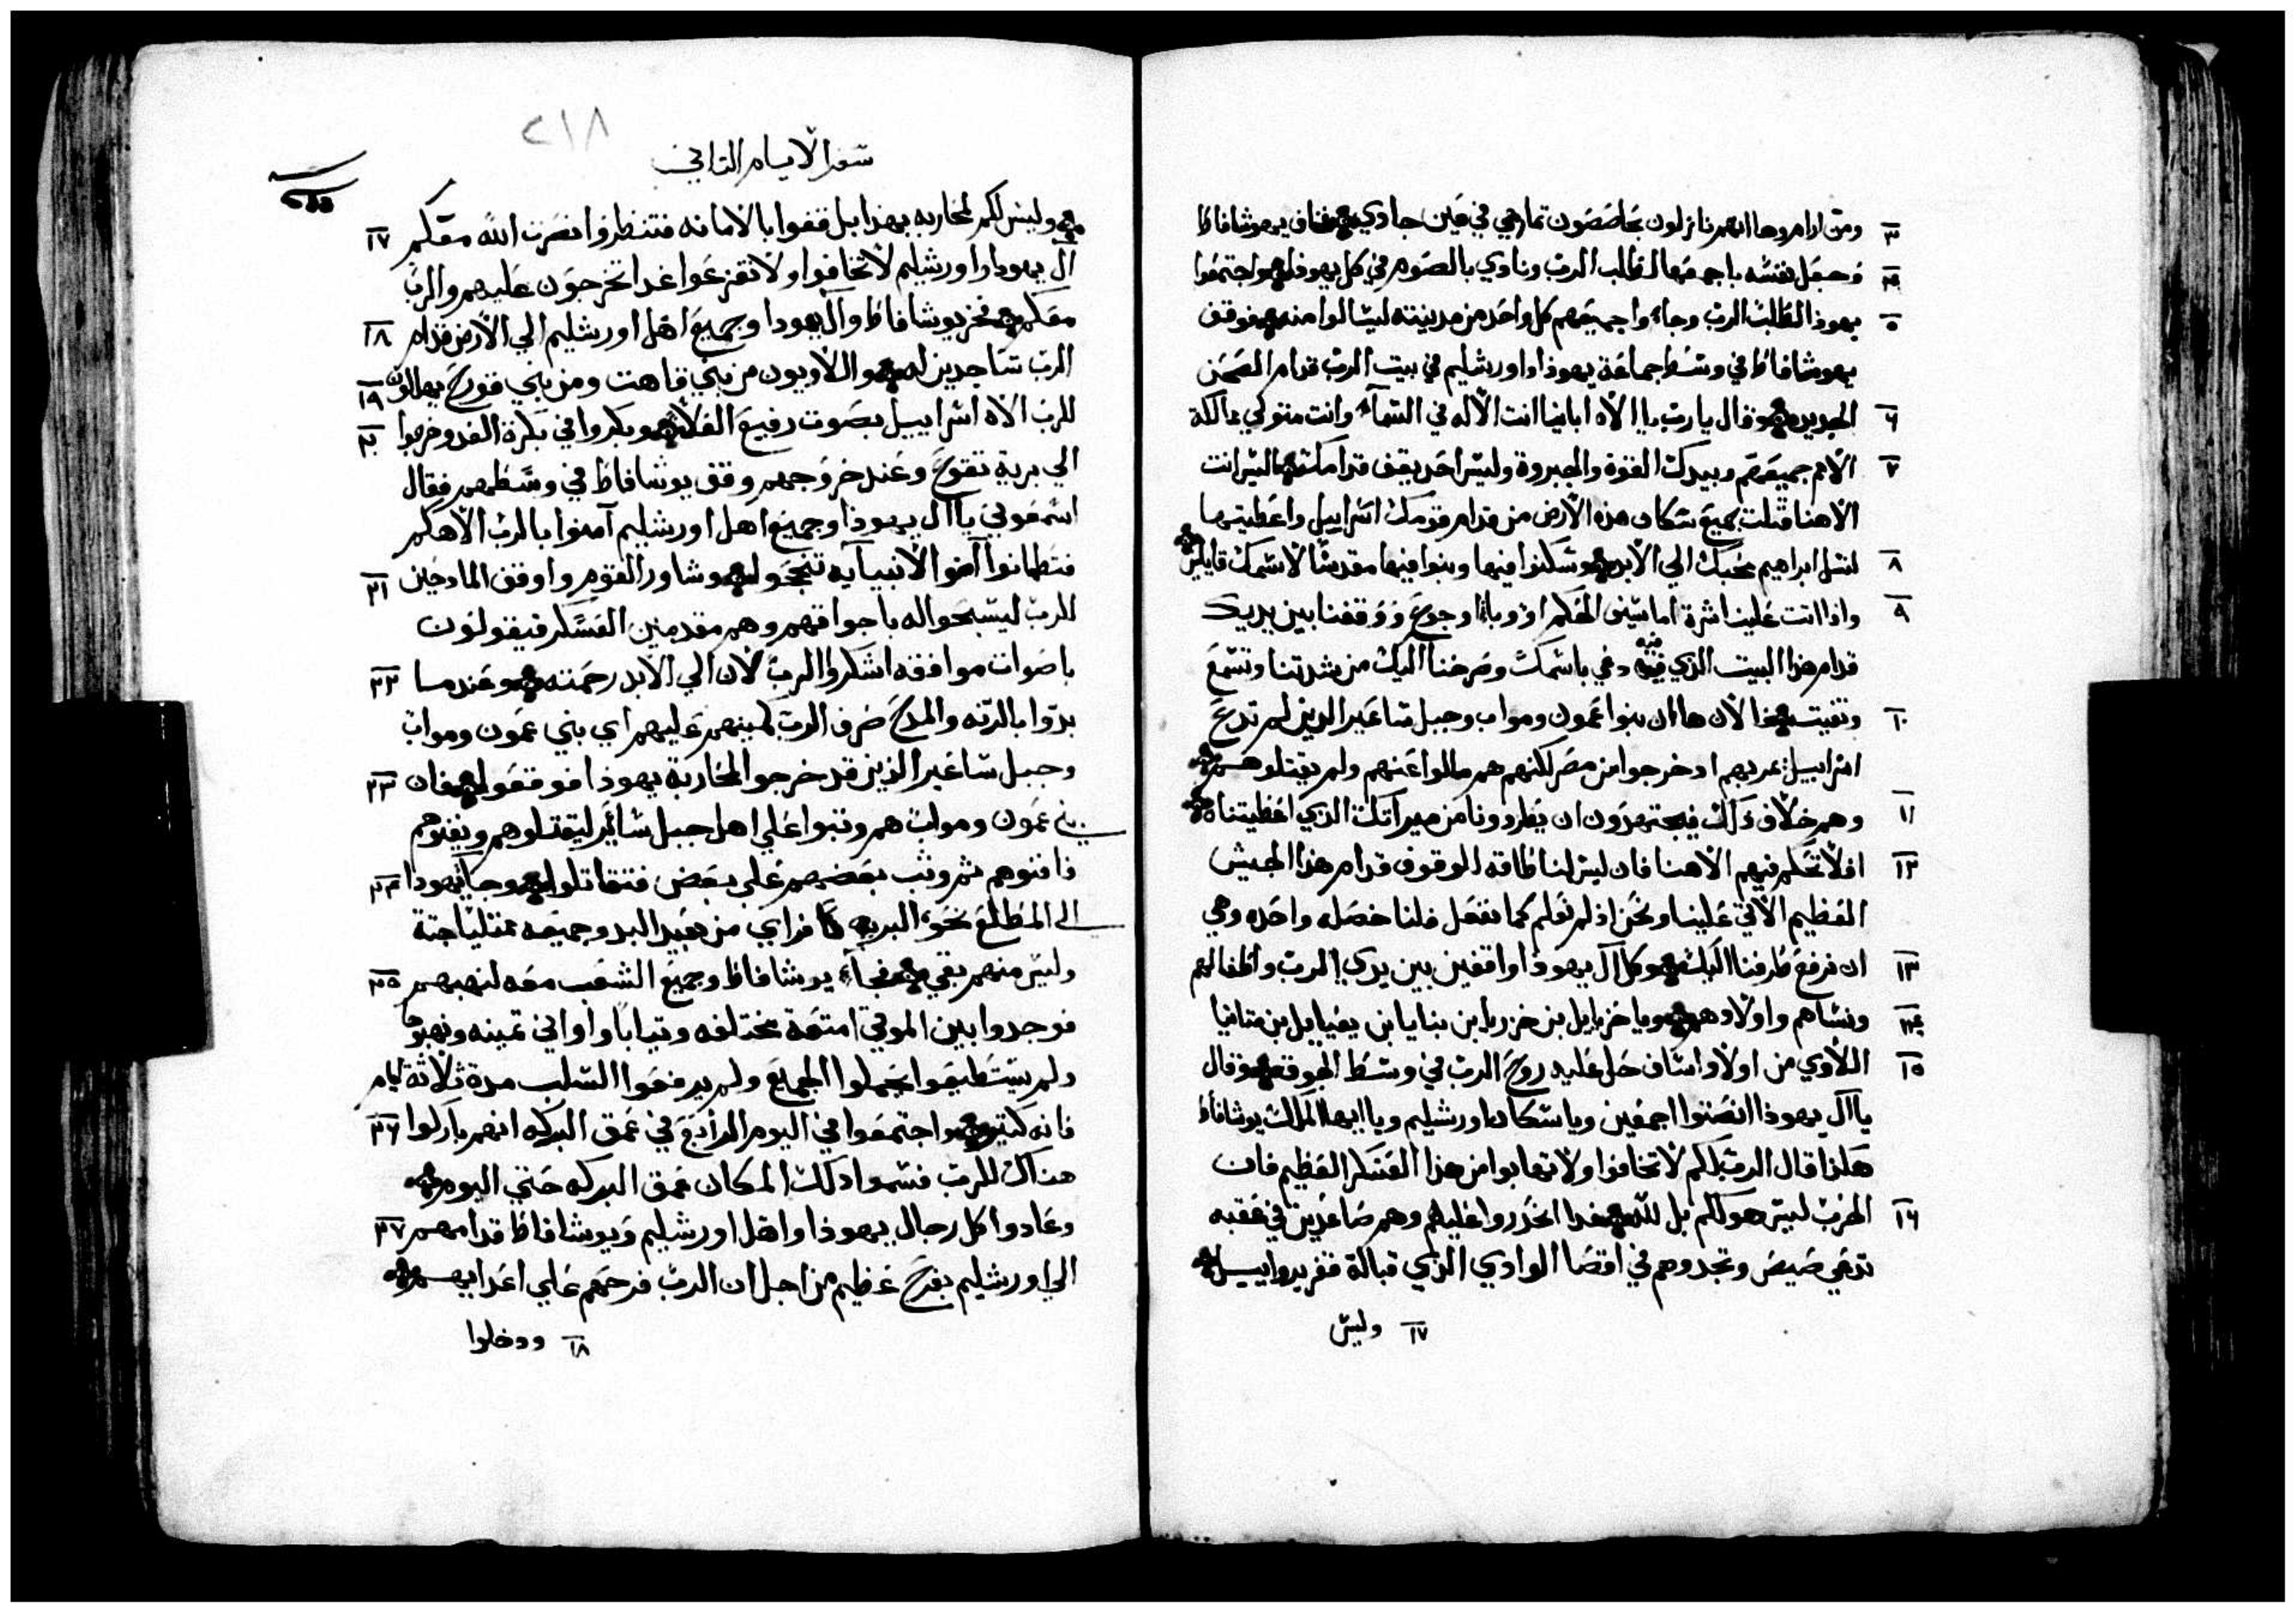 ومن ارام وها انهم نازلون بحاصصون تمار هي في عين جادي فخاف يهوشافاط ٣
وجعل نفسه باجمعها لطلب الرب ونادي بالصوم في كل يهوذا واجتمعوا ٤
يهوذا لطلب الرب وجاءوا جميعهم كل واحد من مدينته ليسالوا منه فوقف ٥
يهوشافاط في وسط جماعة يهوذا واورشليم في بيت الرب قدام الصحن
الجديد وقال يا رب يا الاه ابائنا انت الاله في السماء وانت متولي ممالكة ٦
الامم جميعهم وبيدك القوة والجبروة وليس احد يقف قدامك اليس انت ٧
الاهنا قتلت جميع سكان هذه الارض من قدام قومك اسراييل واعطيتها
لنسل ابراهيم محبك الي الابد وسكنوا فيها وبنوا فيها مقدسا لاسمك قايلين ٨
واذا اتت علينا اشرة اما سيف الحكم او وباء او جوع ووقفنا بين يديك ٩
قدام هذا البيت الذي فيه دعي باسمك وصرخنا اليك من شدتنا وتسمع
وتغيت فالان هاان بنوا عمون ومواب وجبل ساعير الذين لم تدع ١٠
اسراييل عبر بهم اد خرجوا من مصر لكنهم هم مالوا عنهم ولم يقتلوهم
وهم خلاف ذلك فيجتهدون ان يطردونا من ميراثك الذي اعطيتناه ١١
افلا تحكم فيهم الاهنا فان ليس لنا طاقه الوقوف قدام هذا الجيش ١٢
العظيم الاتي علينا ونحن اذ لم نعلم كما نفعل فلنا خصله واحده وهي
ان نرفع طرفنا اليك وكل آل يهوذا واقفين بين يدي الرب واطفالهم ١٣
ونساهم واولادهم ويا حزيايل بن خزريا بن بنايا بن يعيايل بن متانيا ١٤
اللاوي من اولاد اساف حل عليه روح الرب في وسط الجوقه وقال ١٥
يا آل يهوذا انصتوا اجمعين ويا سكان اورشليم ويا ايها الملك يوشافاط
هكذا قال الرب لكم لا تخافوا ولا تهابوا من هذا العسكر العظيم فان
الحرب ليس هو لكم بل لله غدا انحدروا عليهم وهم صاعدين في عقبه ١٦
تدعي صيص وتجدوهم في اقصا الوادي الذي قبالة قفر يرواييل
١٧ وليس
٢١٨
سفر الايام الثاني
وليس لكم محاربه بهذا بل قفوا بالامانه فتنظروا نصرت الله معكم ١٧
آل يهودا واورشليم لا تخافوا ولا تفزعوا غدا تخرجون عليهم والرب
معكم فخر يوشافاط وآل يهودا وجميع اهل اورشليم الي الارض قدام ١٨
الرب ساجدين له واللاويون من بني قاهت ومن بني قورح يهللون ١٩
للرب الاه اسراييل بصوت رفيع وبكروا في بكرة الغد وخرجوا ٢٠
الي برية تقوع وعند خروجهم وقف يوشافاط في وسطهم فقال
اسمعوني يا آل يهوذا وجميع اهل اورشليم آمنوا بالرب الاهكم
فتطمانوا آمنوا لانبيايه تنجحوا وشاور القوم واوقف المادحين ٢١
للرب ليسبحوا له باجواقهم وهم مقدمين العسكر فيقولون
باصوات موافقه اشكروا الرب لان الي الابد رحمته وعندما ٢٢
بدوا بالرته والمدح ضرف الرب كمينهم عليهم اي بني عمون ومواب
وجبل ساعير الذين قد خرجوا لمحاربة يهوذا فوقعوا فان ٢٣
بني عمون ومواب هم وثبوا علي اهل جبل سائير ليقتلوهم ويفنوهم
فافنوهم ثم وثب بعضهم علي بعض فتقاتلوا وجاء يهودا ٢٤
الي المطلع نحو البريه فراي من بعيد البد وجميعه ممتليا جتة
وليس منهم بقي فجاء يوشافاط وجميع الشعب معه لنهبهم ٢٥
فوجدوا بين الموتي امتعة مختلفه وتيابا واواني تمينه ونهبوها
ولم يستطيعوا يحملوا الجميع ولم يرفعوا السلب مدة ثلاثة ايام
فانه كتير واجتمعوا في اليوم الرابع في عمق البركه انهم باركوا ٢٦
هناك للرب فسموا دلك المكان عمق البركه حتي اليوم
وعادوا كل رجال يهوذا واهل اورشليم ويوشافاط قدامهم ٢٧
الي اورشليم بفرح عظيم من اجل ان الرب فرحهم علي اعدايهم
١٨ ودخلوا